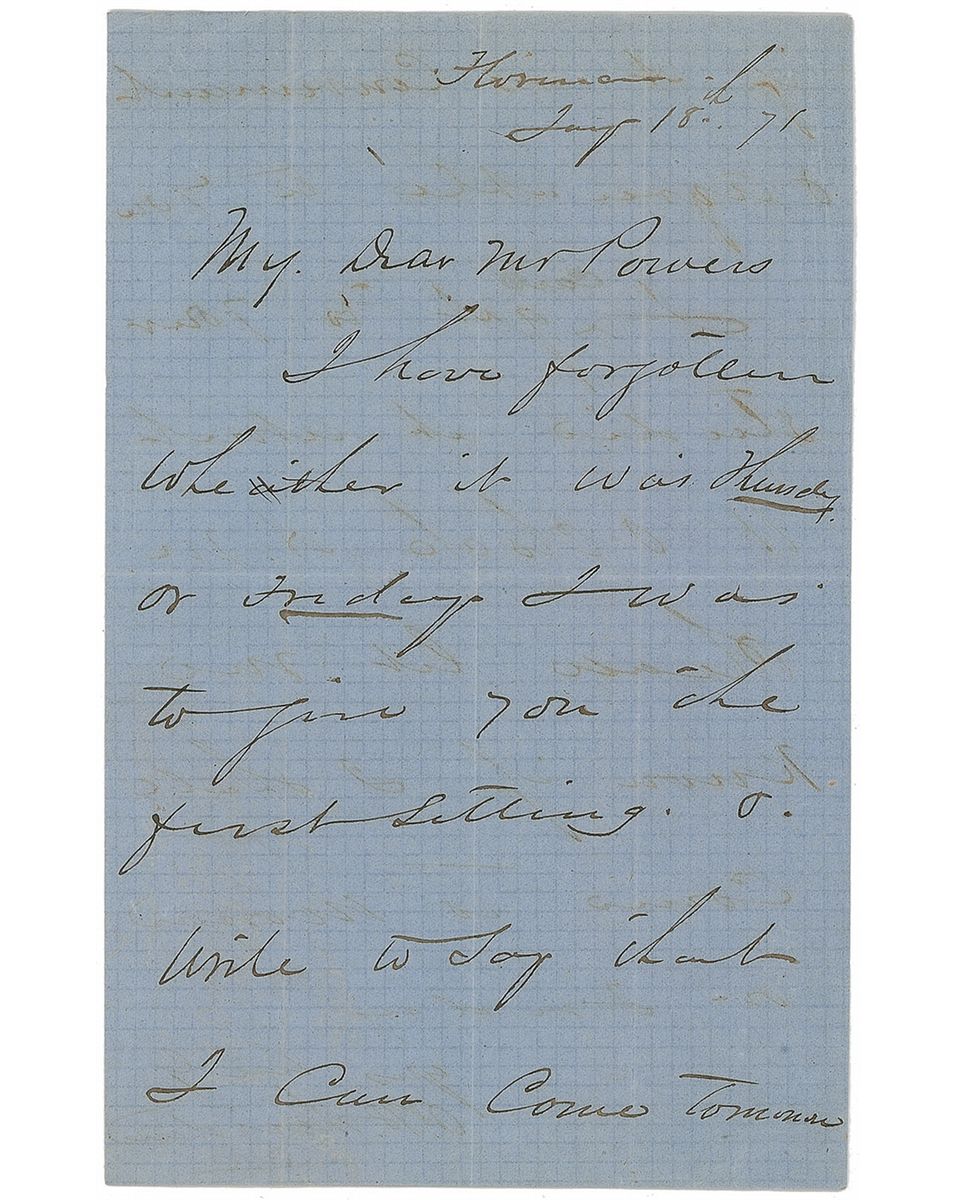 Florence
Jany 18th 71
My. Dear Mr Powers
I have forgotten
Whether it was Thursday.
or Friday I was
to give you the
first Sitting. &.
Write to Say that
I Can Come Tomorrow